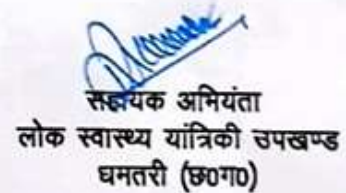 सहायक अभियंता
लोक स्वास्थ्य यांत्रिकी उपखण्ड
धमतरी (छ0ग0)